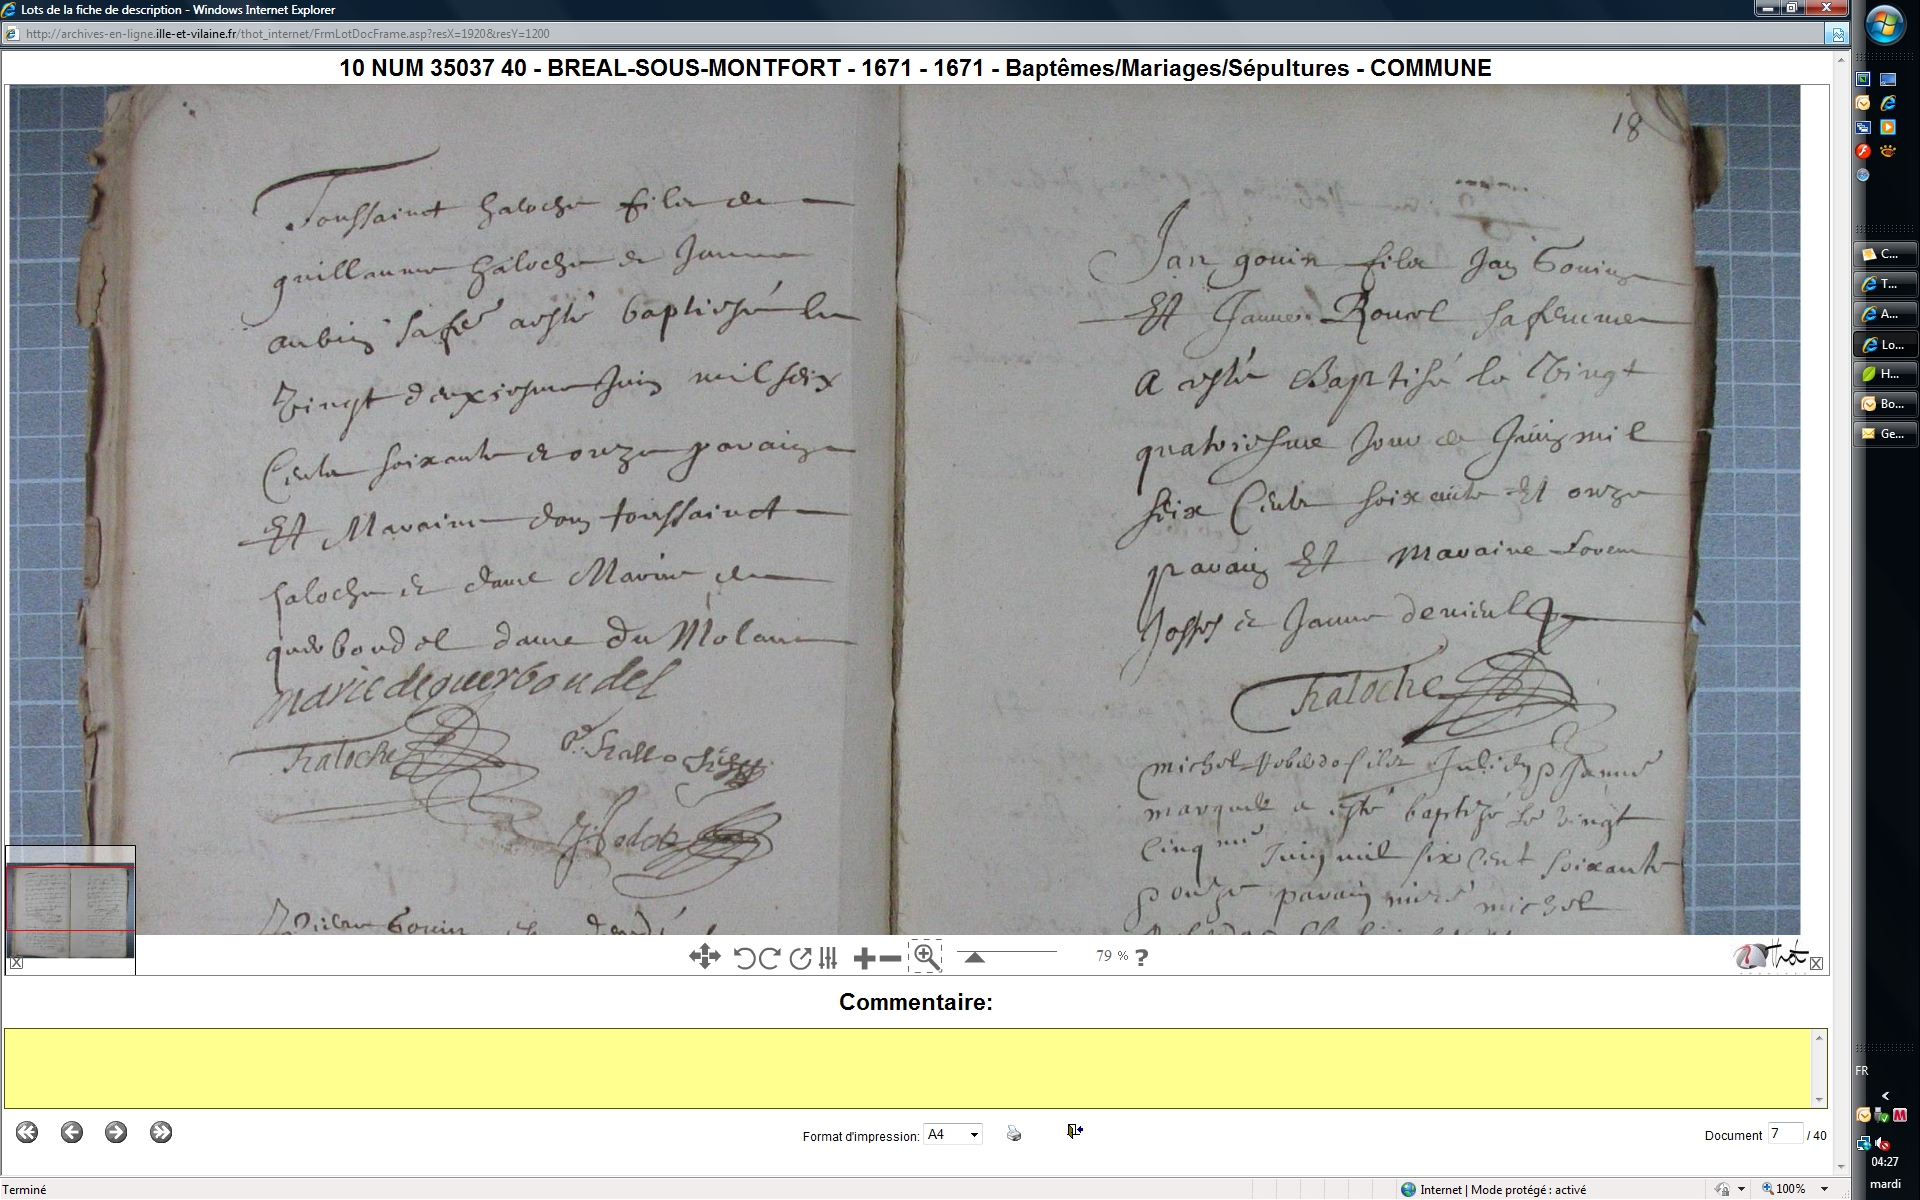 Lots de la fiche de description - Windows Internet Explorer
http://archives-en-ligne.ille-et-vilaine.fr/thot_internet/FrmLotDocFrame.asp?resX=1920&resY=1200
10 NUM 35037 40 - BREAL-SOUS-MONTFORT - 1671 - 1671 - Baptêmes/Mariages/Sépultures - COMMUNE
Toussainct haloche filz de
guillaume haloche et Janne
aubin sa fe a esté baptissé le
Vingt deuxiesme Juin mil seix
Cents soixante et onze paraign
Et Maraine dom toussainct
haloche et dame Marie de
querboudel dame du Molant
marie de querboudel
haloche
18
Jan gouin filz Jan Gouin
Et Janne Rouxel sa femme
a esté Baptisé le Vingt
quatriesme Jour de Juing mil
seix Cents soixante Et onze
parain Et maraine
Josses et Janne
haloche
michel filz Julien et Janne
a esté baptizé le vingt
Cinq me Juin mil six cent soixante
et onze parain michel
79 % ?
Thot
Commentaire:
Format d'impression: A4
Document 7 / 40
Terminé
Internet | Mode protégé : activé
100%
C...
T...
A...
Lo...
H...
Bo...
Ge...
FR
04:27
mardi